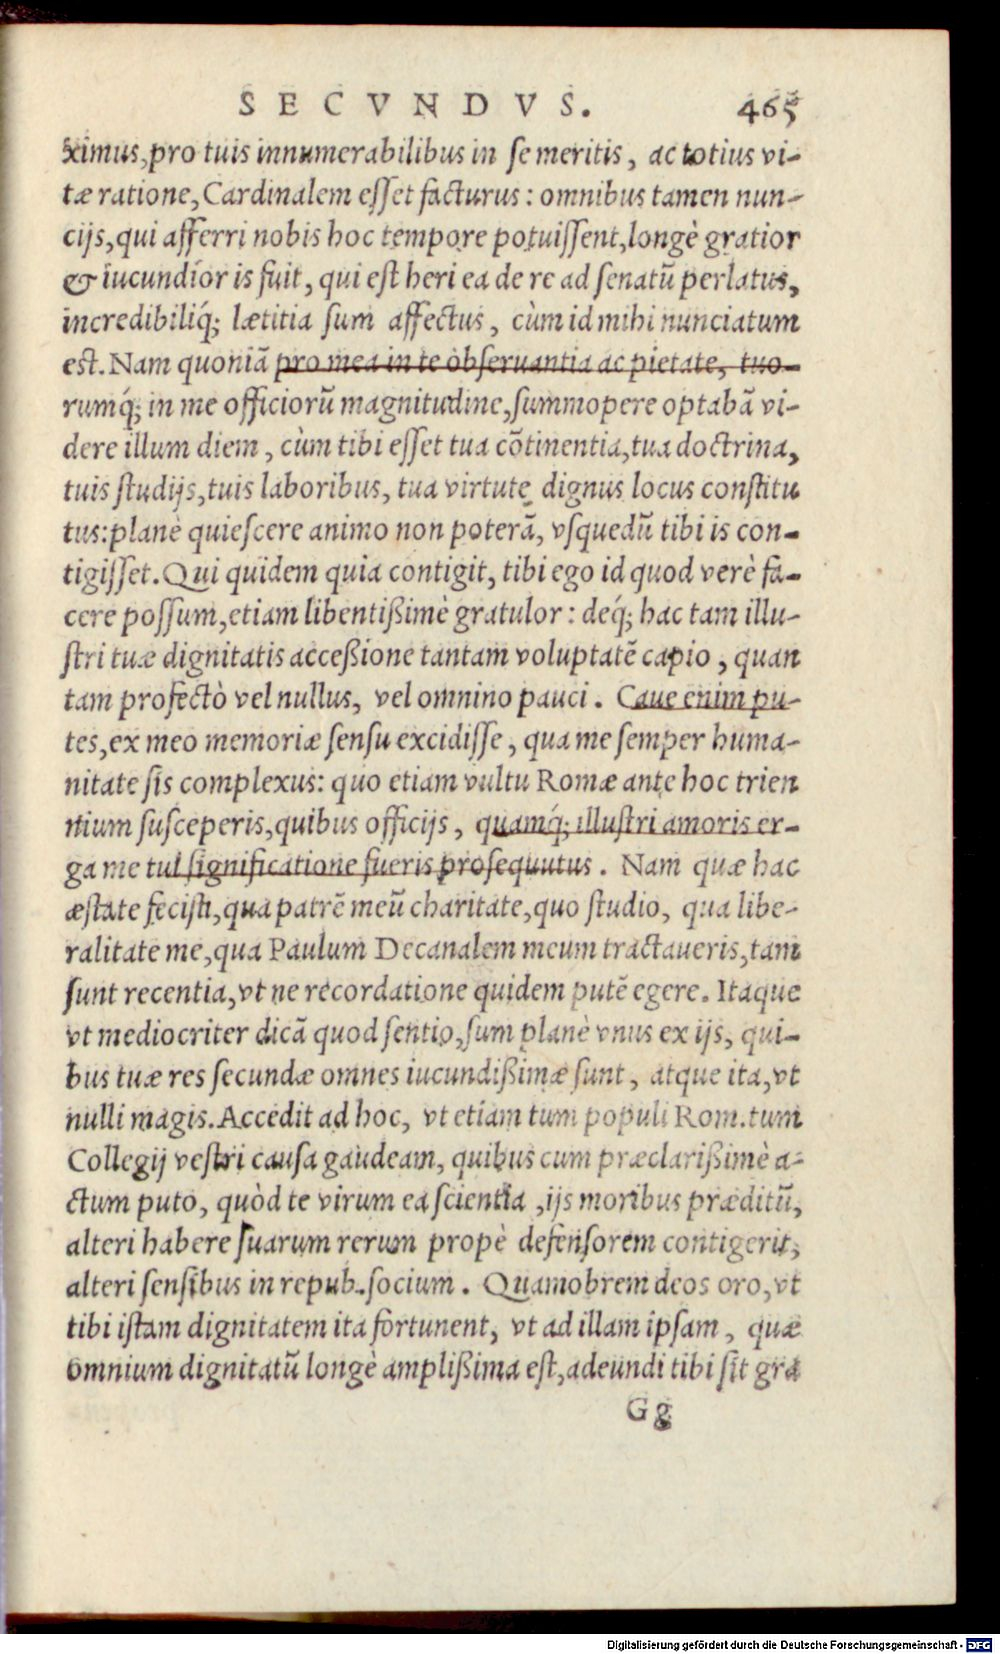 SECVNDVS. 465
ximus, pro tuis innumerabilibus in se meritis, ac totius vi-
tæ ratione, Cardinalem esset facturus: omnibus tamen nun-
cijs, qui afferri nobis hoc tempore potuissent, longè gratior
& iucundior is fuit, qui est heri ea de re ad senatũ perlatus,
incredibiliq́; lætitia sum affectus, cùm id mihi nunciatum
est. Nam quoniã pro mea in te obseruantia ac pietate, tuo-
rumq́; in me officiorũ magnitudine, summopere optabã vi-
dere illum diem, cùm tibi esset tua cõtinentia, tua doctrina,
tuis studijs, tuis laboribus, tua virtute dignus locus constitu
tus: planè quiescere animo non poterã, vsquedũ tibi is con-
tigisset. Qui quidem quia contigit, tibi ego id quod verè fa-
cere possum, etiam libentißimè gratulor: deq́; hac tam illu-
stri tuæ dignitatis acceßione tantam voluptatẽ capio, quan
tam profectò vel nullus, vel omnino pauci. Caue enim pu-
tes, ex meo memoriæ sensu excidisse, qua me semper huma-
nitate sis complexus: quo etiam vultu Romæ ante hoc trien
nium susceperis, quibus officijs, quamq́; illustri amoris er-
ga me tui significatione fueris prosequutus. Nam quæ hac
æstate fecisti, qua patrẽ meũ charitate, quo studio, qua libe-
ralitate me, qua Paulum Decanalem meum tractaueris, tam
sunt recentia, vt ne recordatione quidem putẽ egere. Itaque
vt mediocriter dicã quod sentio, sum planè vnus ex ijs, qui-
bus tuæ res secundæ omnes iucundißimæ sunt, atque ita, vt
nulli magis. Accedit ad hoc, vt etiam tum populi Rom. tum
Collegij vestri causa gaudeam, quibus cum præclarißimè a-
ctum puto, quòd te virum ea scientia, ijs moribus præditũ,
alteri habere suarum rerum propè defensorem contigerit,
alteri sensibus in repub. socium. Quamobrem deos oro, vt
tibi istam dignitatem ita fortunent, vt ad illam ipsam, quæ
omnium dignitatũ longè amplißima est, adeundi tibi sit gra
Gg
Digitalisierung gefördert durch die Deutsche Forschungsgemeinschaft - DFG